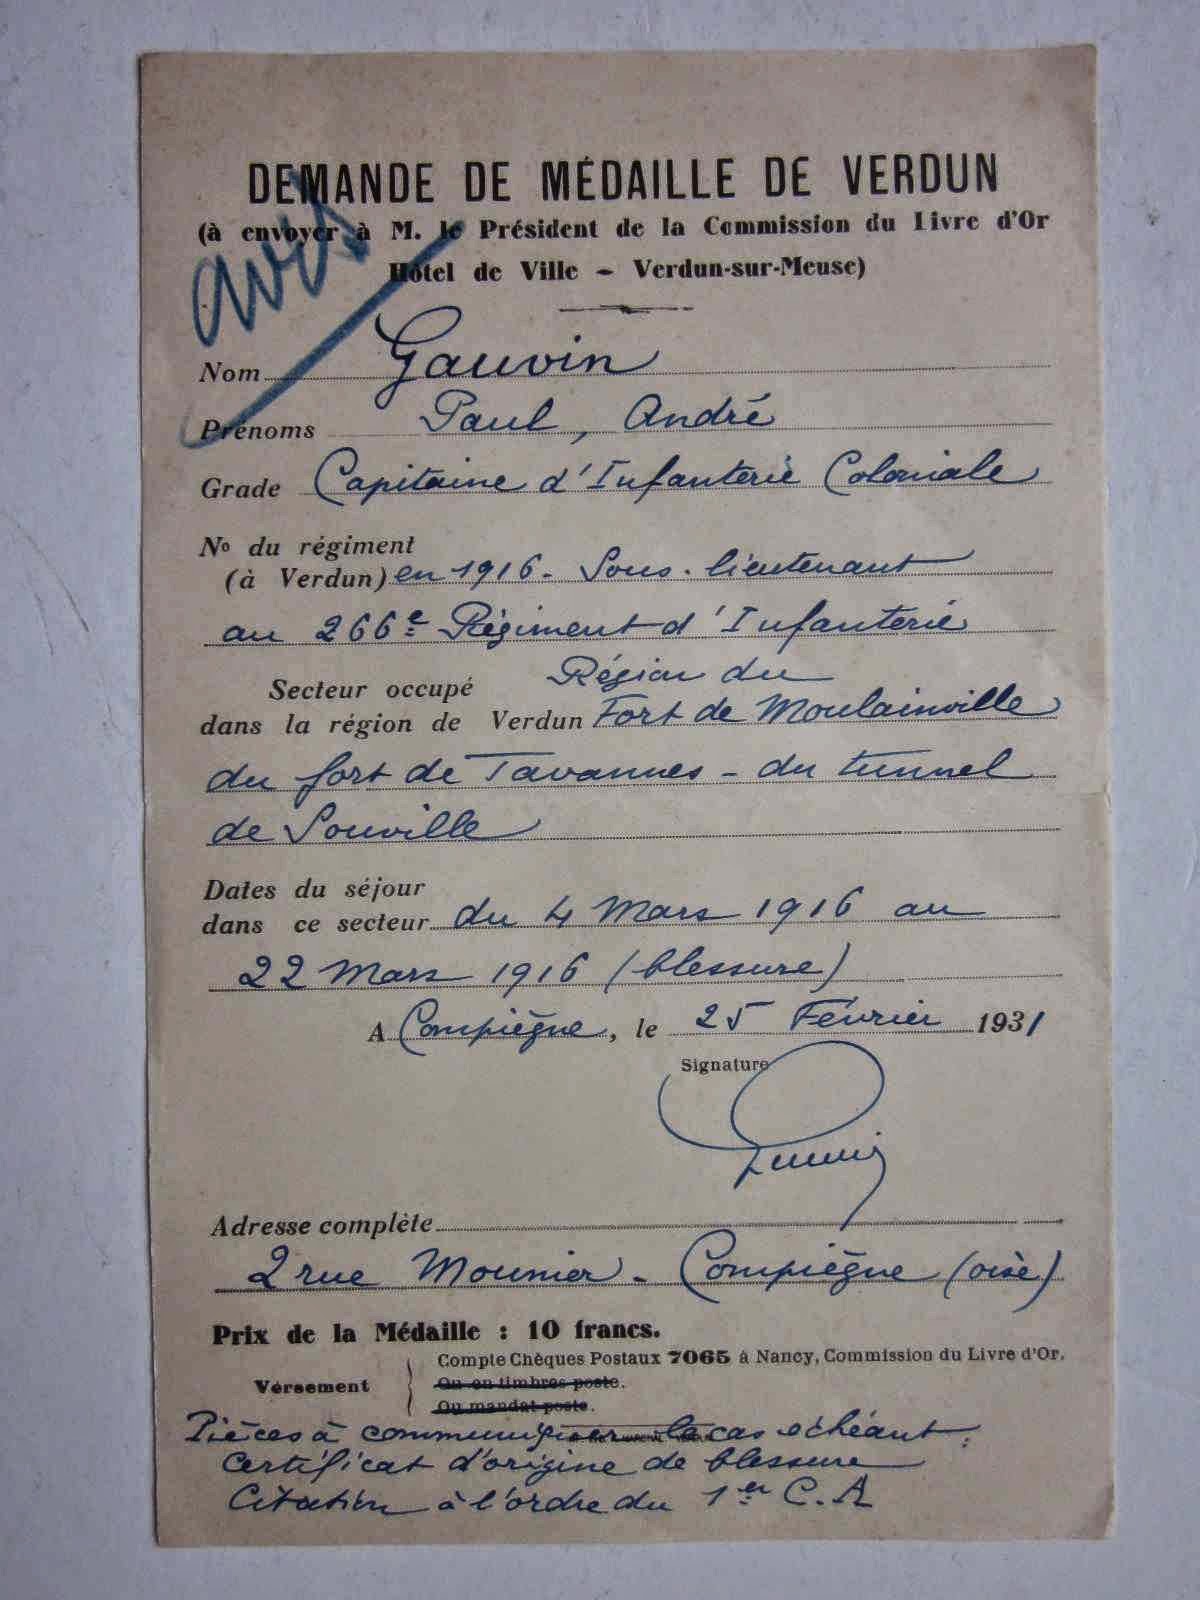 DEMANDE DE MÉDAILLE DE VERDUN
(à envoyer à M. le Président de la Commission du Livre d'Or
Hôtel de Ville - Verdun-sur-Meuse)
Nom Gauvin
Prénoms Paul, André
Grade Capitaine d'Infanterie Coloniale
No du régiment
(à Verdun) en 1916 - Sous-lieutenant
au 266e Régiment d'Infanterie
Secteur occupé Région du
dans la région de Verdun Fort de Moulainville
du fort de Tavannes - du tunnel
de Souville
Dates du séjour
dans ce secteur du 4 Mars 1916 au
22 Mars 1916 (blessure)
A Compiègne, le 25 Février 1931
Signature
Adresse complète
2 rue Mounier - Compiègne (oise)
Prix de la Médaille : 10 francs.
Compte Chèques Postaux 7065 à Nancy, Commission du Livre d'Or.
Versement
Ou en timbres poste.
Ou mandat poste.
Pièces à communiquer le cas échéant :
Certificat d'origine de blessure
Citation à l'ordre du 1er C.A